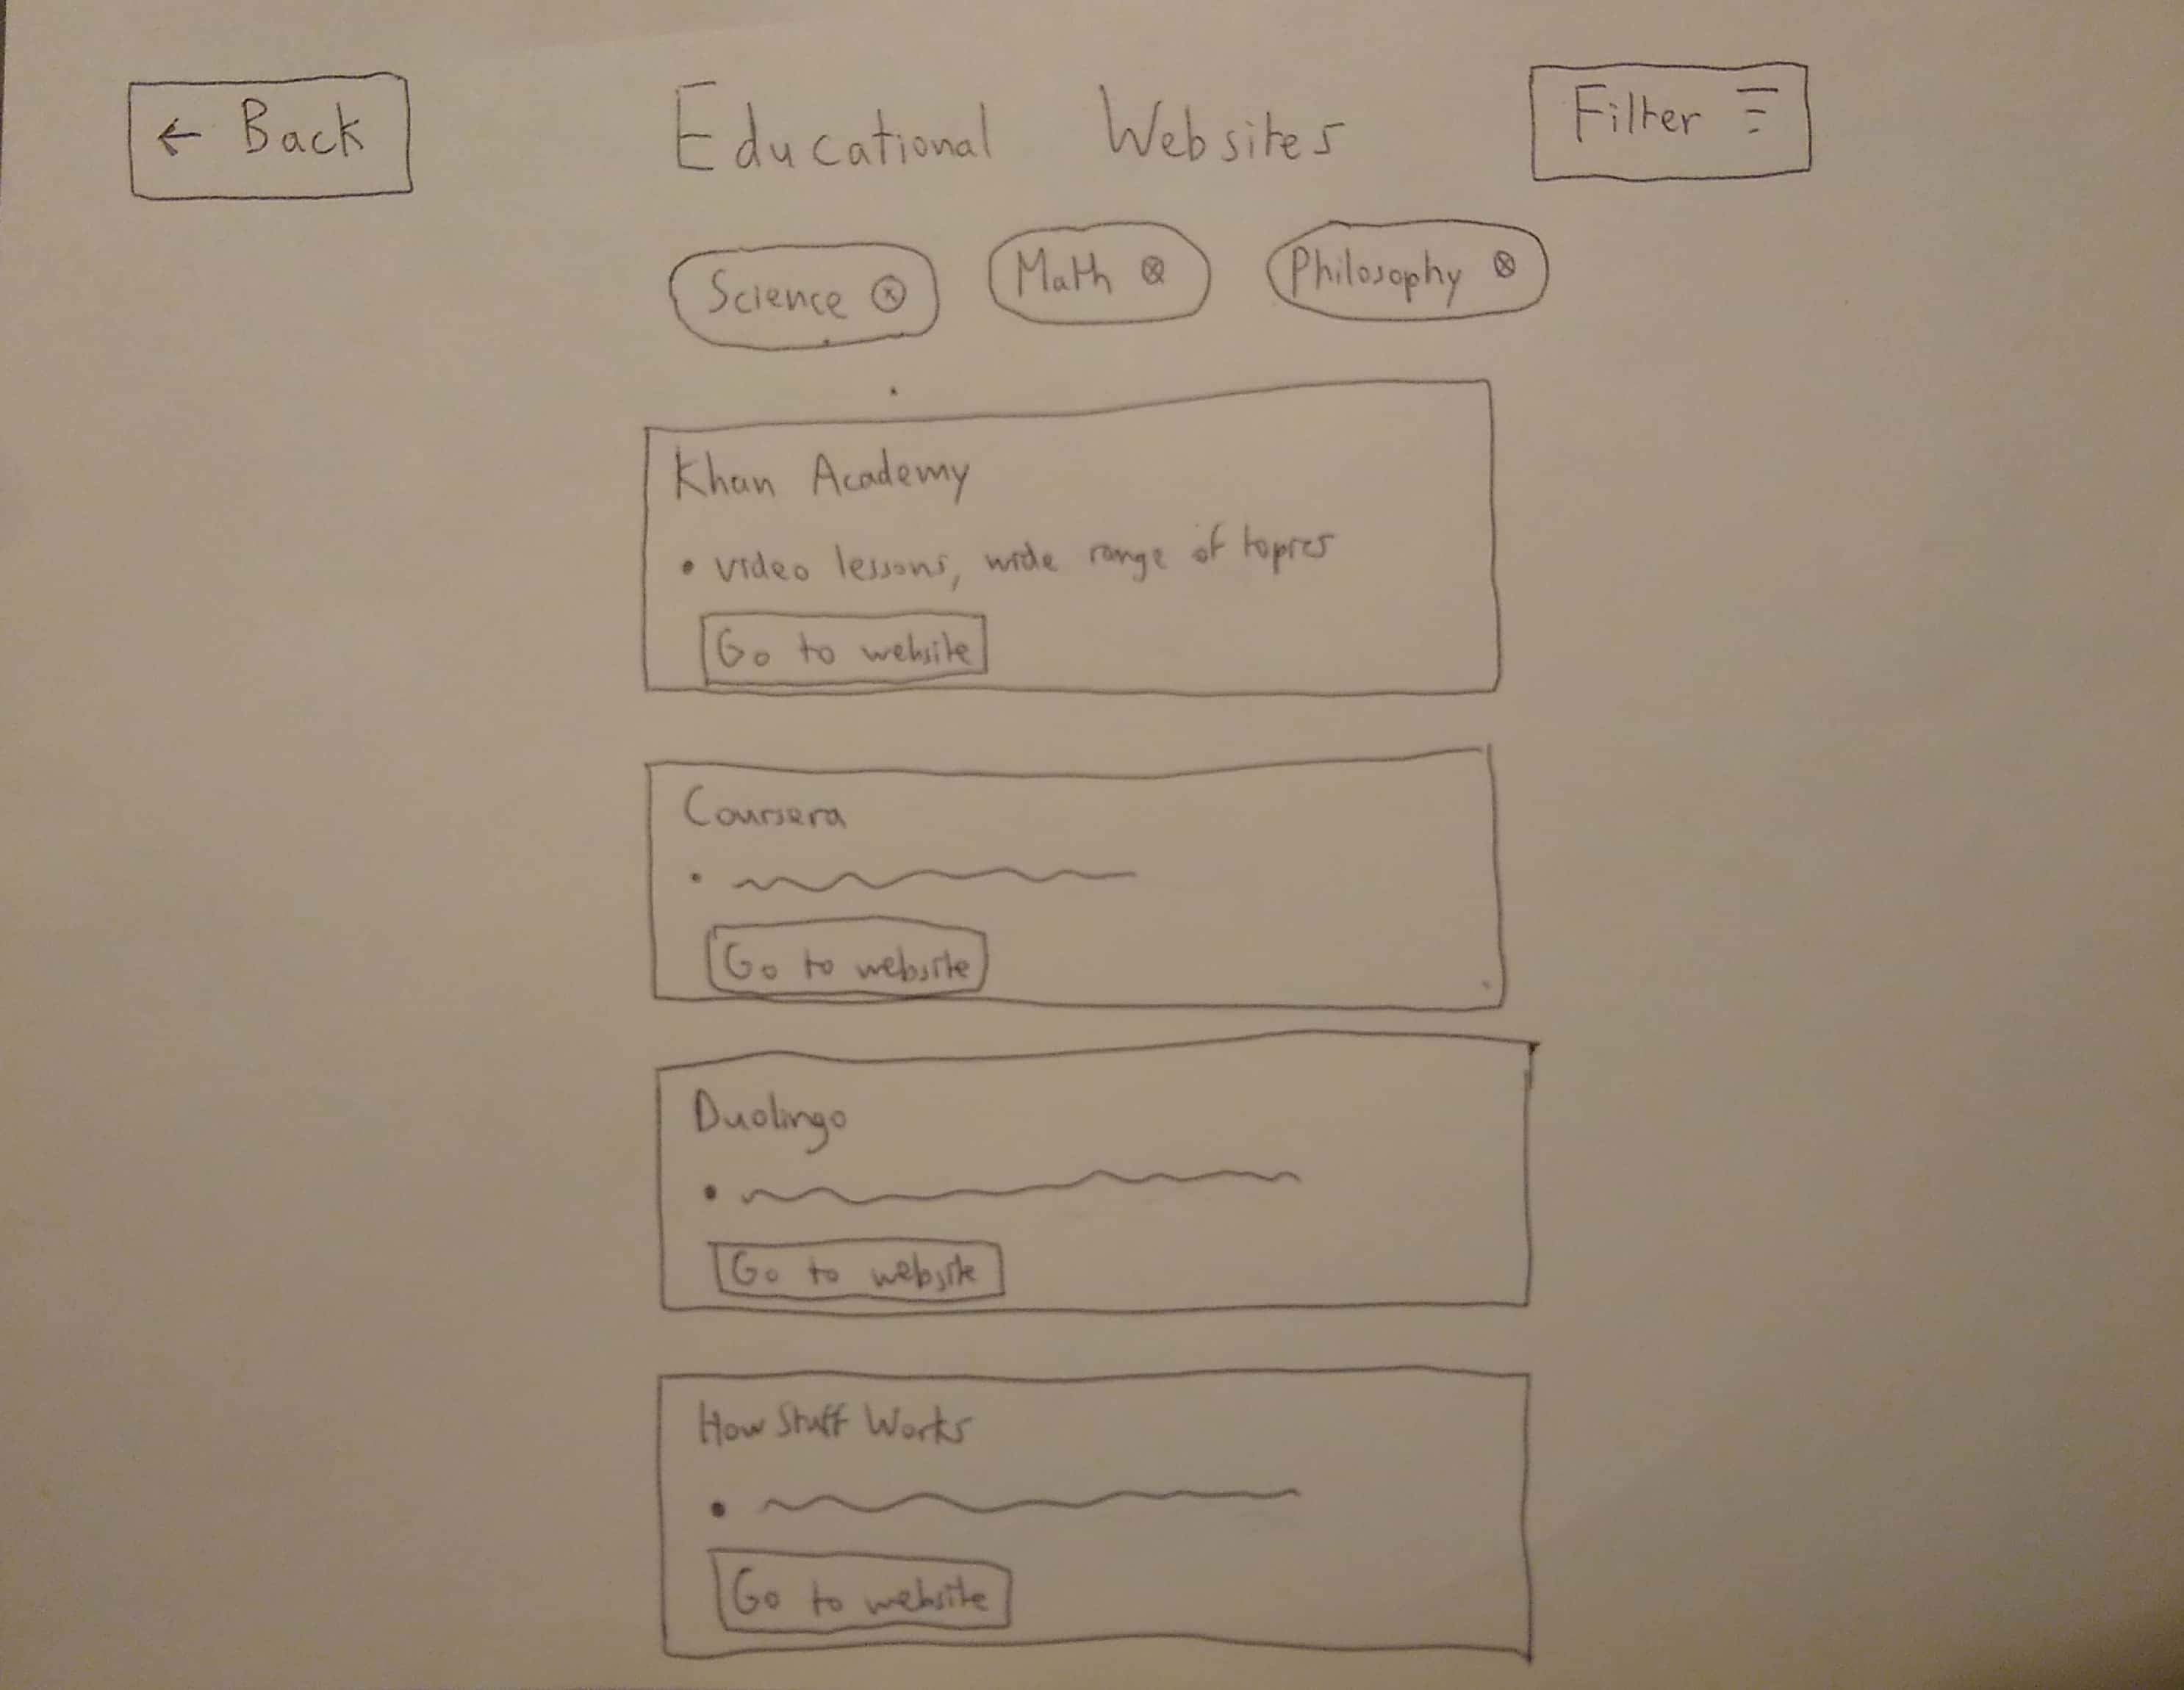 ← Back Educational Websites Filter
Science ⊗ Math ⊗ Philosophy ⊗
Khan Academy
• video lessons, wide range of topics
Go to website
Coursera
Go to website
Duolingo
Go to website
How Stuff Works
Go to website